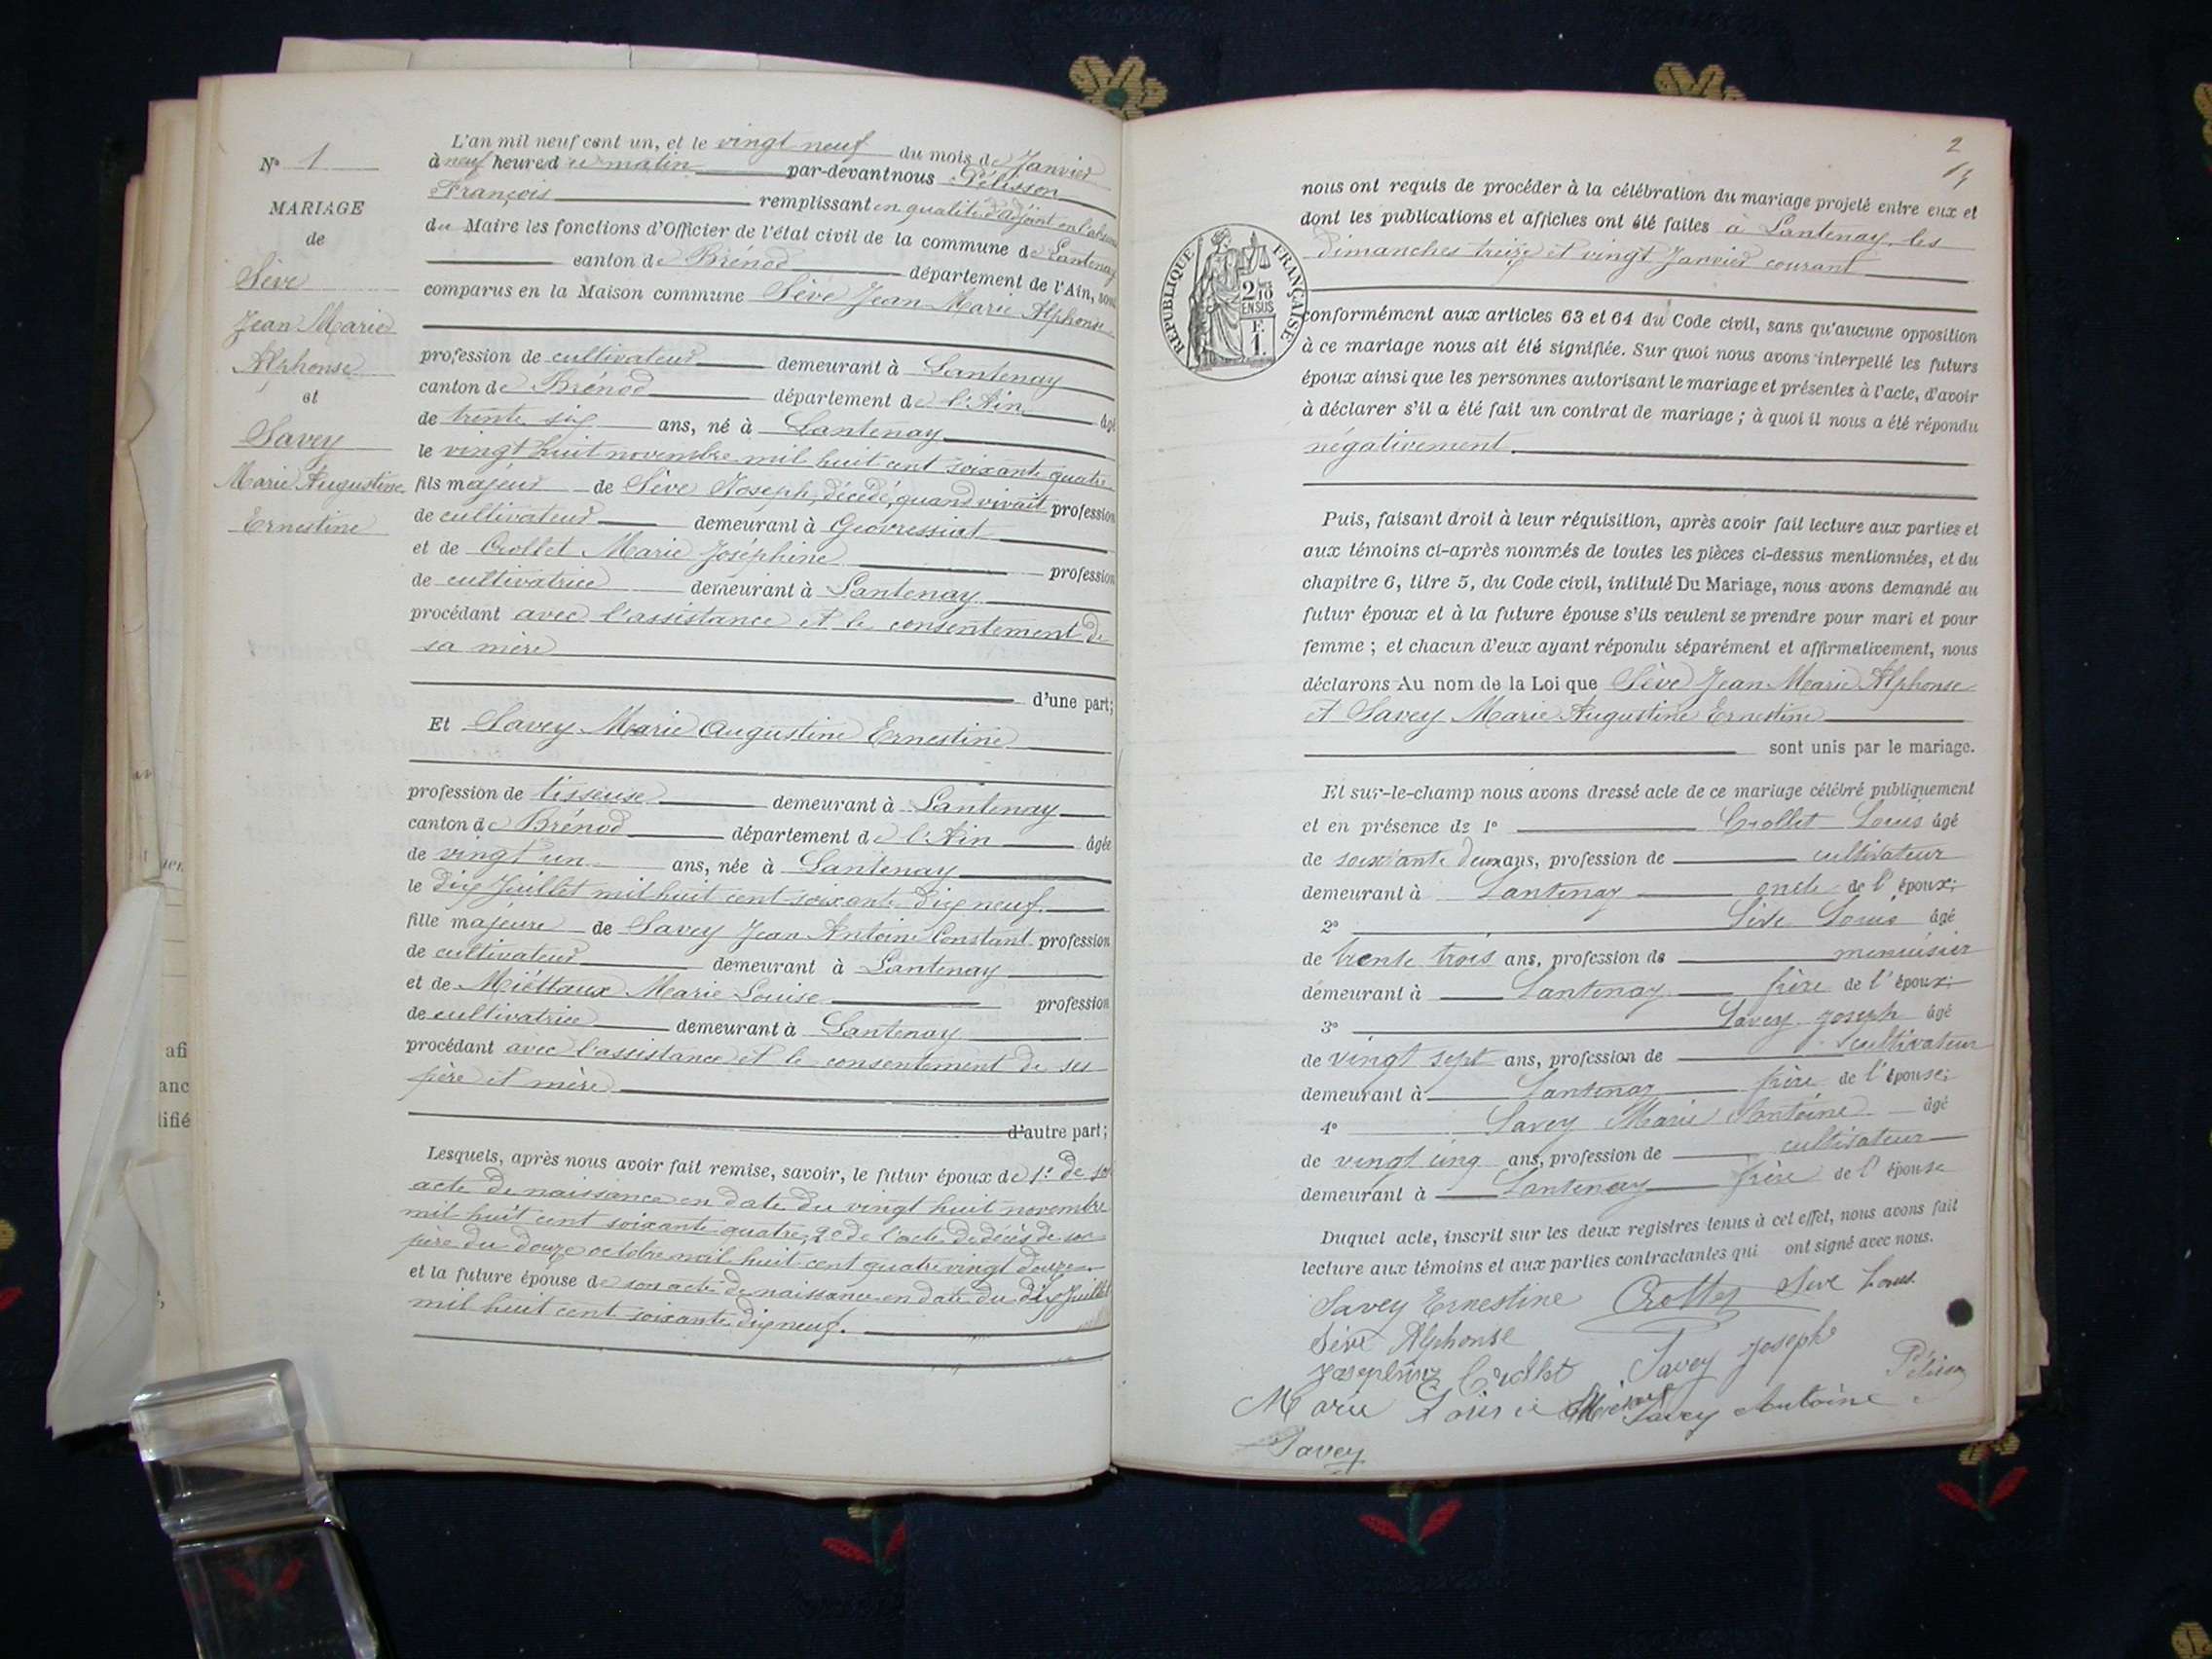 N° 1
MARIAGE
de
Sève
Jean Marie
Alphonse
et
Savey
Marie Augustine
Ernestine
L'an mil neuf cent un, et le vingt neuf du mois de Janvier
à neuf heures du matin par-devant nous Pélisson
François remplissant en qualité d'adjoint en l'absence
du Maire les fonctions d'Officier de l'état civil de la commune de Lantenay
canton de Brénod département de l'Ain, sont
comparus en la Maison commune Sève Jean Marie Alphonse
profession de cultivateur demeurant à Lantenay
canton de Brénod département de l'Ain âgé
de trente six ans, né à Lantenay
le vingt huit novembre mil huit cent soixante quatre
fils majeur de Sève Joseph, décédé, quand vivait profession
de cultivateur demeurant à Géovressiat
et de Crollet Marie Joséphine profession
de cultivatrice demeurant à Lantenay
procédant avec l'assistance et le consentement de
sa mère
d'une part;
Et Savey Marie Augustine Ernestine
profession de tisseuse demeurant à Lantenay
canton de Brénod département de l'Ain âgée
de vingt un ans, née à Lantenay
le dix Juillet mil huit cent soixante dix neuf.
fille majeure de Savey Jean Antoine Constant profession
de cultivateur demeurant à Lantenay
et de Miéttaux Marie Louise profession
de cultivatrice demeurant à Lantenay
procédant avec l'assistance et le consentement de ses
père et mère
d'autre part;
Lesquels, après nous avoir fait remise, savoir, le futur époux de 1° de son
acte de naissance en date du vingt huit novembre
mil huit cent soixante quatre, 2° de l'acte de décès de son
père du douze octobre mil huit cent quatre vingt douze
et la future épouse de son acte de naissance en date du dix Juillet
mil huit cent soixante dix neuf.
2
RÉPUBLIQUE FRANÇAISE
2/10
EN SUS
F.
1.
nous ont requis de procéder à la célébration du mariage projeté entre eux et
dont les publications et affiches ont été faites à Lantenay, les
dimanches treize et vingt Janvier courant
conformément aux articles 63 et 64 du Code civil, sans qu'aucune opposition
à ce mariage nous ait été signifiée. Sur quoi nous avons interpellé les futurs
époux ainsi que les personnes autorisant le mariage et présentes à l'acte, d'avoir
à déclarer s'il a été fait un contrat de mariage ; à quoi il nous a été répondu
négativement.
Puis, faisant droit à leur réquisition, après avoir fait lecture aux parties et
aux témoins ci-après nommés de toutes les pièces ci-dessus mentionnées, et du
chapitre 6, titre 5, du Code civil, intitulé Du Mariage, nous avons demandé au
futur époux et à la future épouse s'ils veulent se prendre pour mari et pour
femme ; et chacun d'eux ayant répondu séparément et affirmativement, nous
déclarons Au nom de la Loi que Sève Jean Marie Alphonse
et Savey Marie Augustine Ernestine
sont unis par le mariage.
Et sur-le-champ nous avons dressé acte de ce mariage célébré publiquement
et en présence de 1° Crollet Louis âgé
de soixante deux ans, profession de cultivateur
demeurant à Lantenay oncle de l'époux;
2° Sève Louis âgé
de trente trois ans, profession de menuisier
demeurant à Lantenay frère de l'époux;
3° Savey Joseph âgé
de vingt sept ans, profession de cultivateur
demeurant à Lantenay frère de l'épouse;
4° Savey Marie Antoine âgé
de vingt cinq ans, profession de cultivateur
demeurant à Lantenay frère de l'épouse
Duquel acte, inscrit sur les deux registres tenus à cet effet, nous avons fait
lecture aux témoins et aux parties contractantes qui ont signé avec nous.
Savey Ernestine Crollet Sève Louis
Sève Alphonse
Joséphine Crollet Savey Joseph Pélisson
Marie Louise Savey Antoine
Savey
afi
anc
lifié